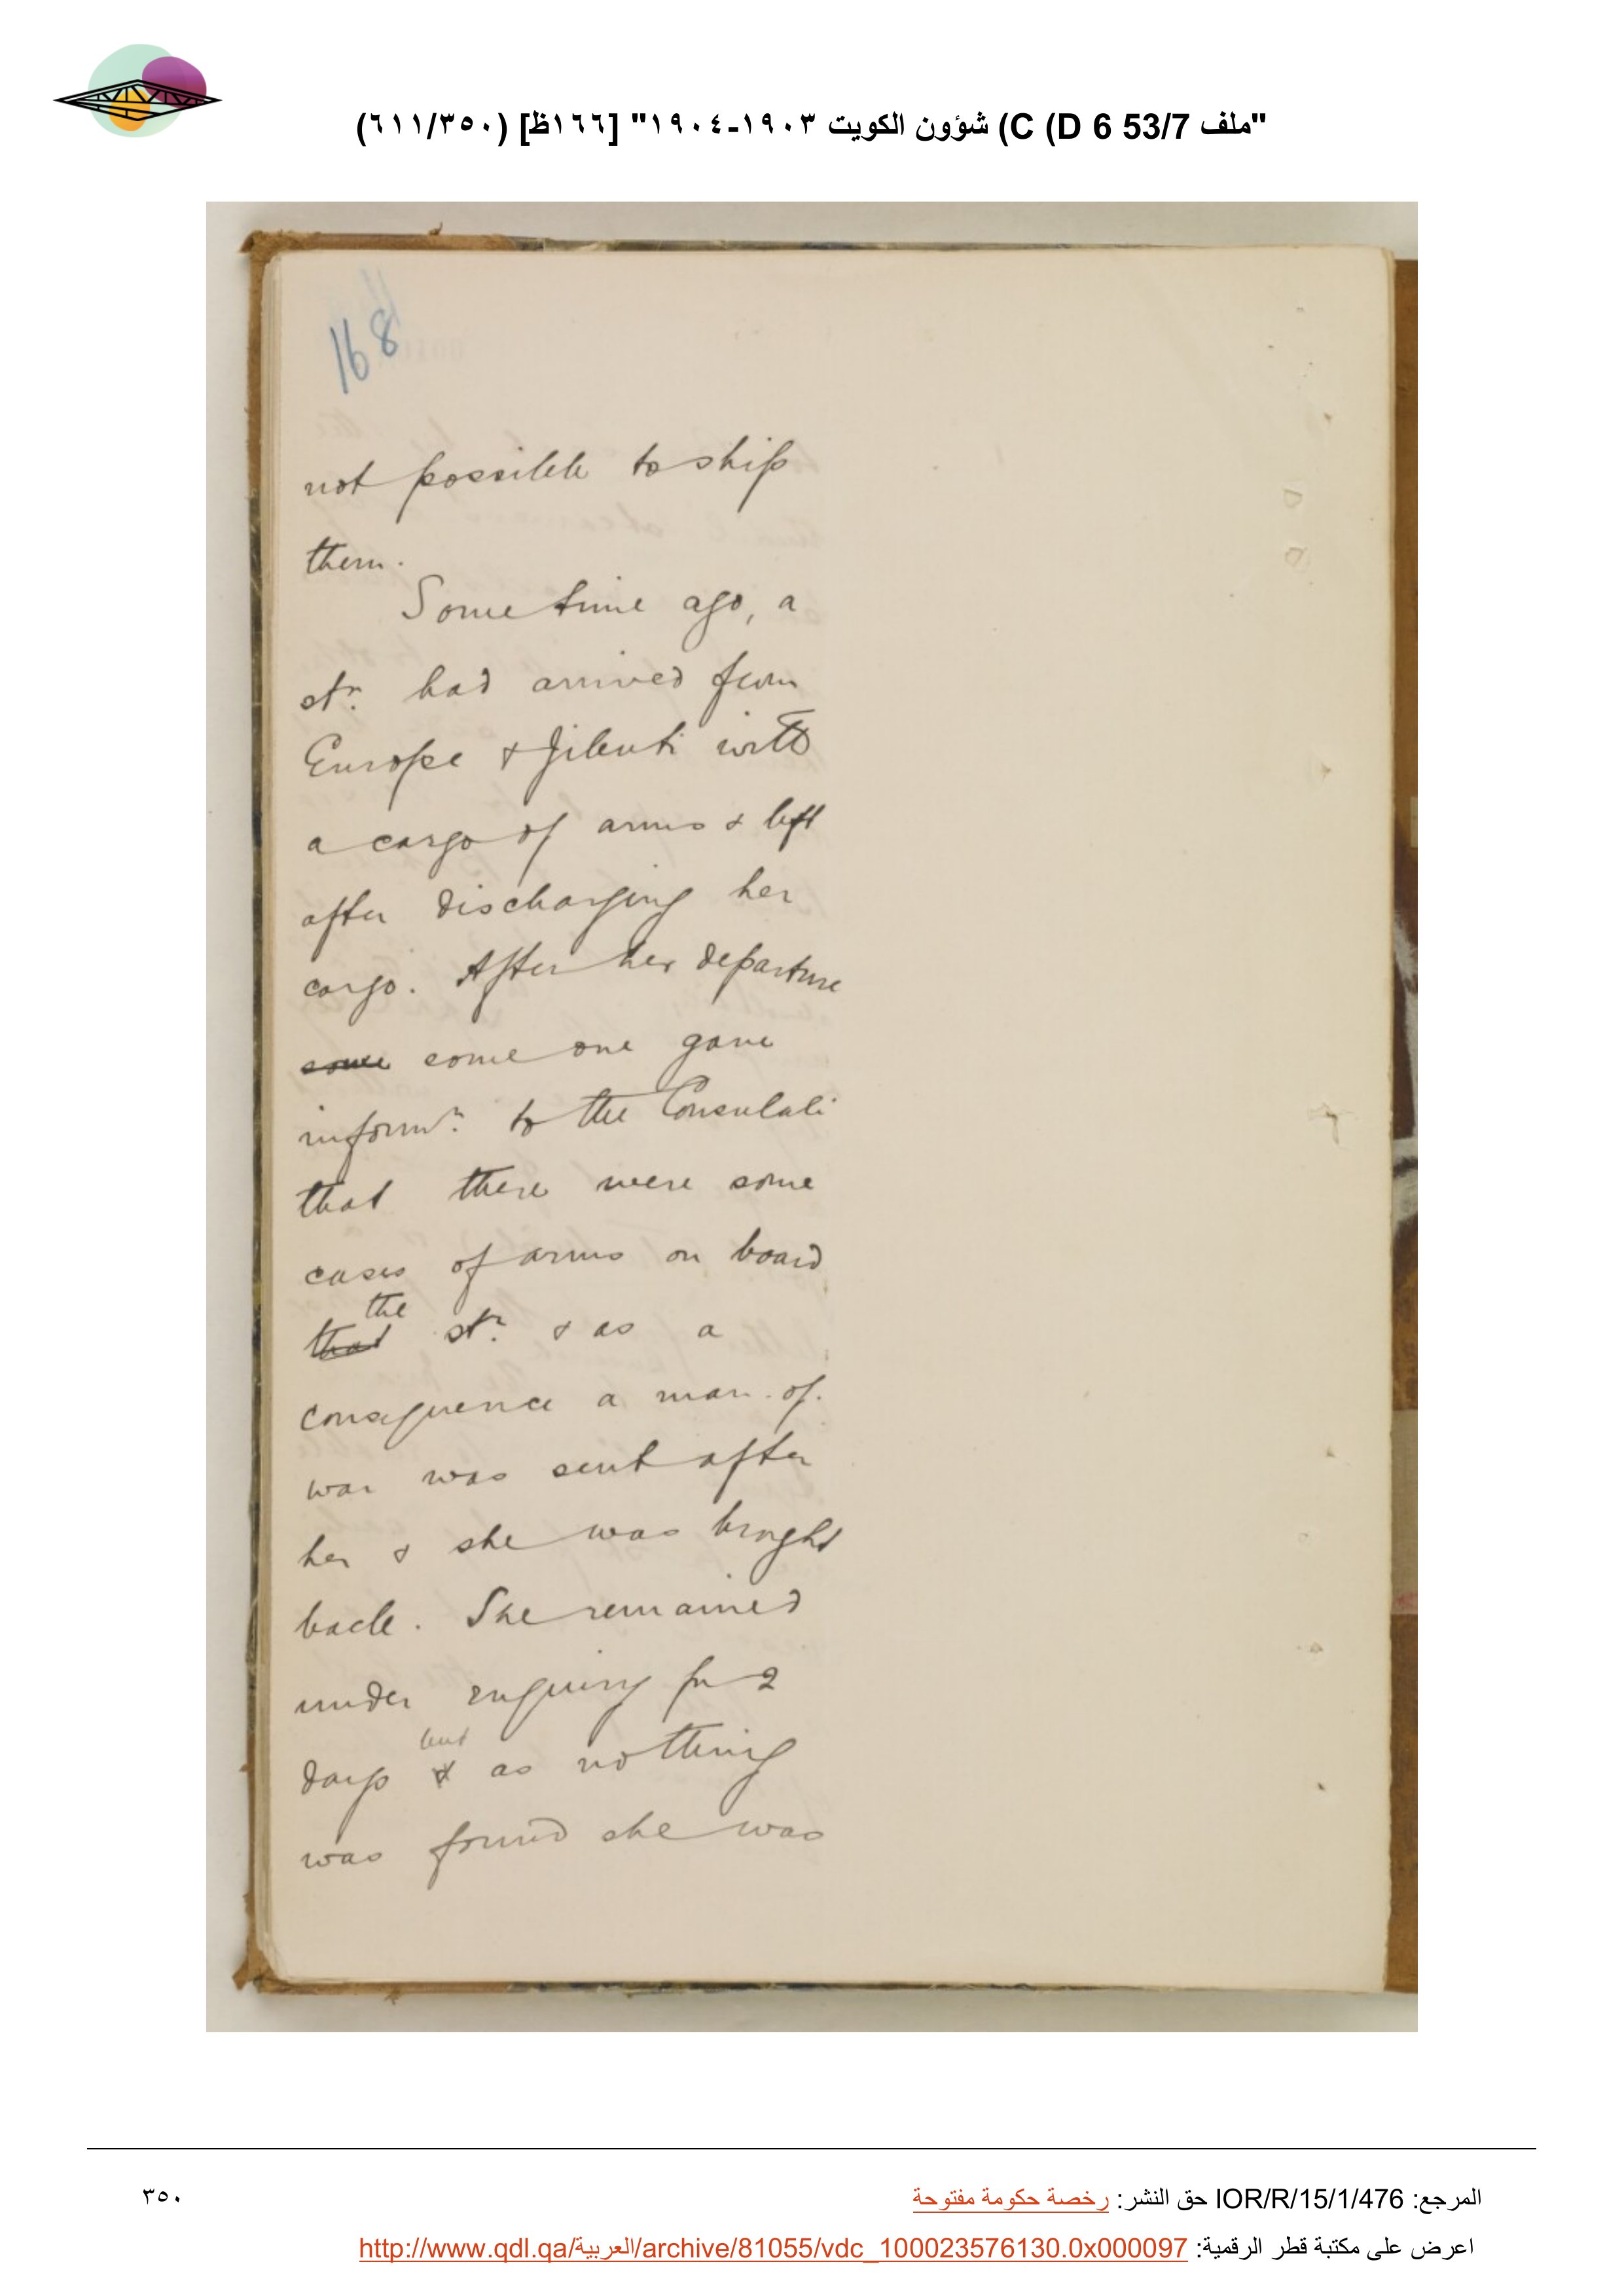 "ملف 53/7 C (D 6) شؤون الكويت ١٩٠٣-١٩٠٤" [١٦٦ظ] (٦١١/٣٥٠)
168
not possible to ship
them.
Some time ago, a
str. had arrived from
Europe & Jibuti with
a cargo of arms & left
after discharging her
cargo. After her departure
some some one gave
informn. to the Consulate
that there were some
cases of arms on board
the
that str. & as a
consequence a man-of-
war was sent after
her & she was brought
back. She remained
under enquiry for 2
but
days & as nothing
was found she was
المرجع: IOR/R/15/1/476 حق النشر: رخصة حكومة مفتوحة
٣٥٠
اعرض على مكتبة قطر الرقمية: http://www.qdl.qa/العربية/archive/81055/vdc_100023576130.0x000097